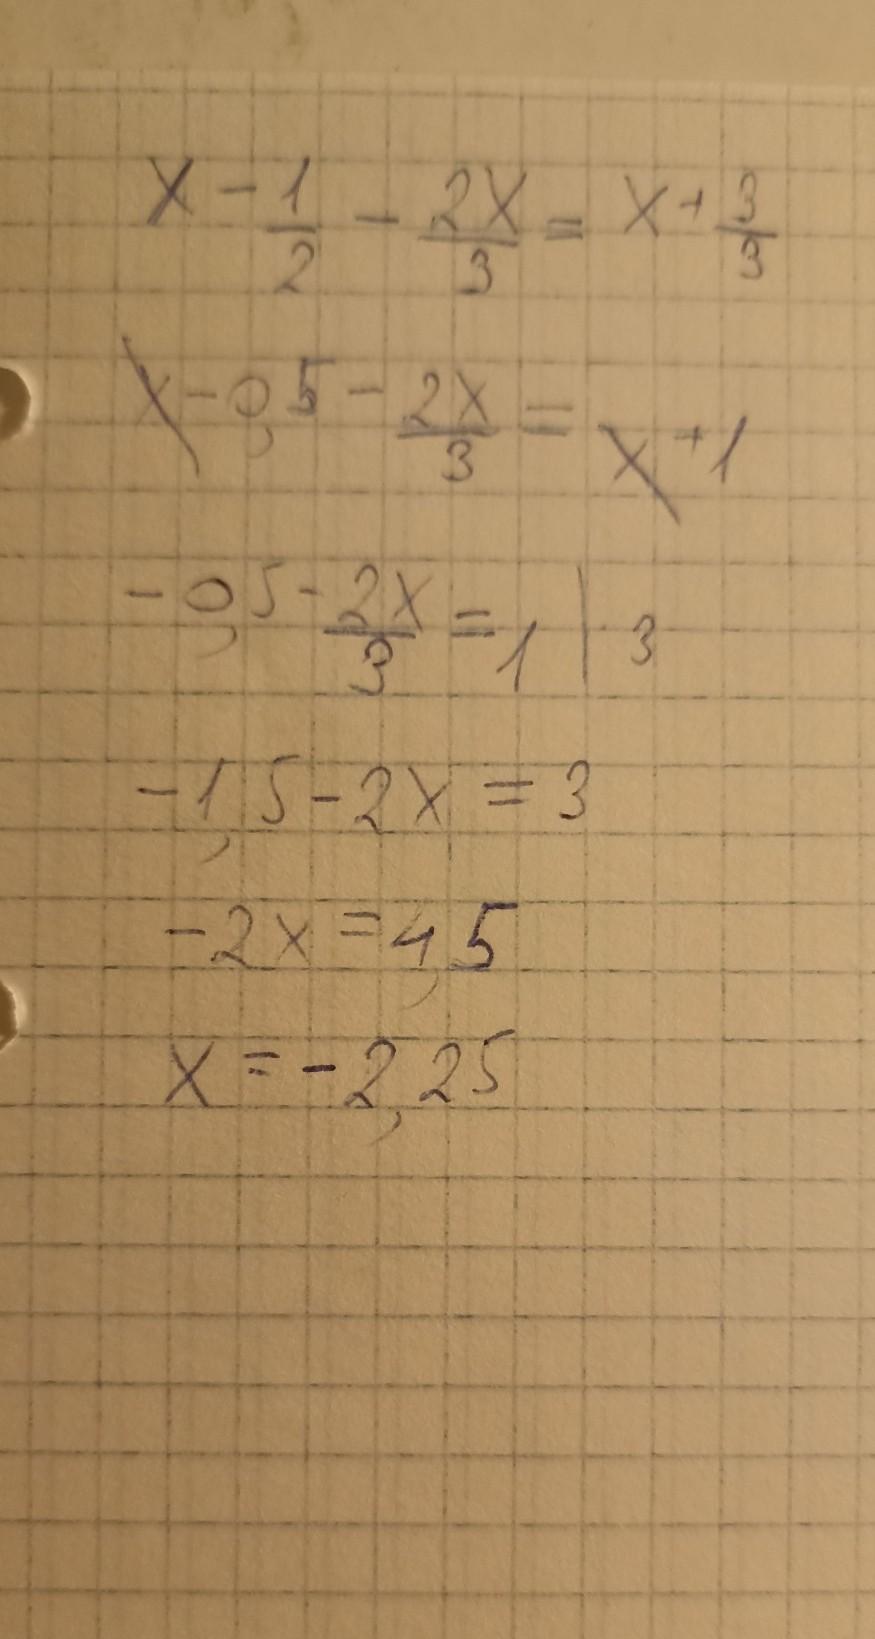 x - 1/2 - 2x/3 = x + 3/3
x - 0,5 - 2x/3 = x + 1
-0,5 - 2x/3 = 1 | · 3
-1,5 - 2x = 3
-2x = 4,5
x = -2,25